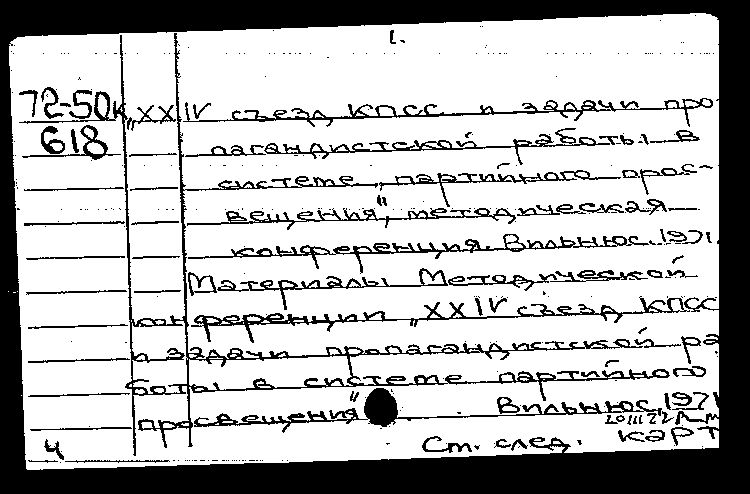 1.
72-50к „XXIV съезд КПСС и задачи про-
618 пагандистской работы в
системе „партийного прос-
вещения", методическая
конференция. Вильнюс. 1971.
Материалы Методической
конференции „XXIV съезд КПСС
и задачи пропагандистской ра
боты в системе партийного
просвещения" Вильнюс, 1971
4 Ст. след. карт